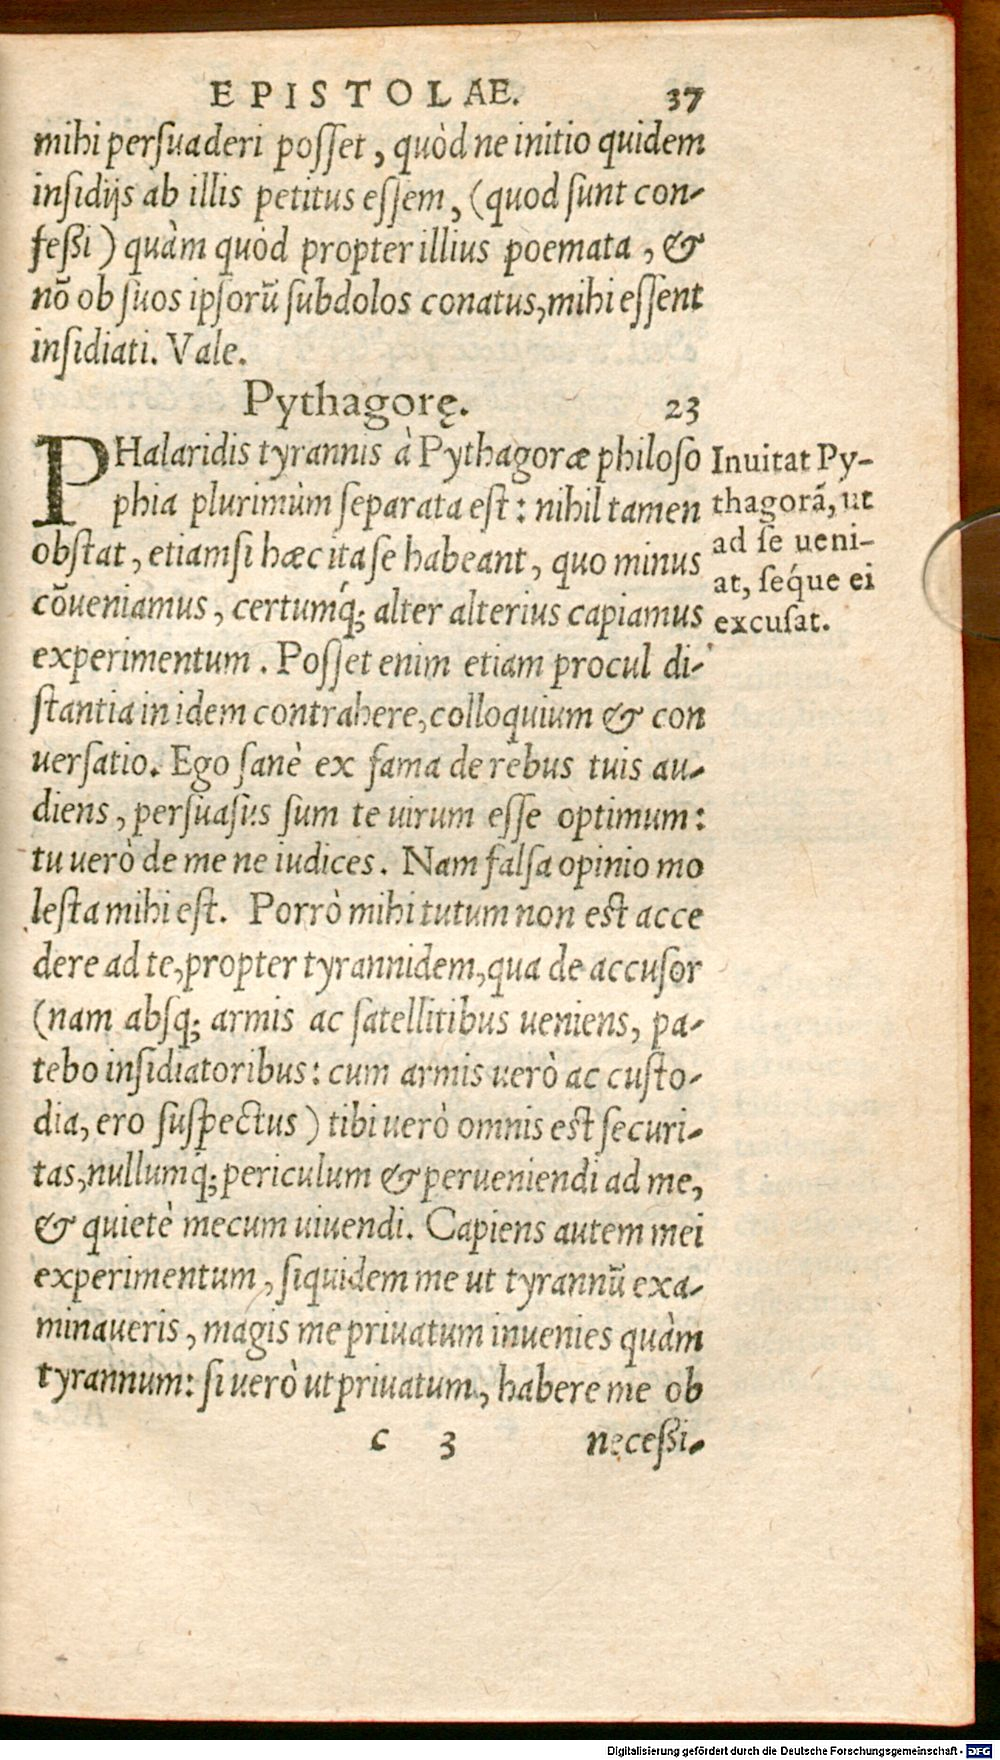 EPISTOLAE. 37
mihi persuaderi posset, quòd ne initio quidem
insidijs ab illis petitus essem, (quod sunt con-
feßi) quàm quòd propter illius poemata, &
nō ob suos ipsorū subdolos conatus, mihi essent
insidiati. Vale.
Pythagorę. 23
PHalaridis tyrannis à Pythagoræ philoso
phia plurimùm separata est: nihil tamen
obstat, etiamsi hæc ita se habeant, quo minus
cōueniamus, certumq́; alter alterius capiamus
experimentum. Posset enim etiam procul di-
stantia in idem contrahere, colloquium & con
uersatio. Ego sanè ex fama de rebus tuis au-
diens, persuasus sum te uirum esse optimum:
tu uerò de me ne iudices. Nam falsa opinio mo
lesta mihi est. Porrò mihi tutum non est acce
dere ad te, propter tyrannidem, qua de accusor
(nam absq; armis ac satellitibus ueniens, pa-
tebo insidiatoribus: cum armis uerò ac custo-
dia, ero suspectus) tibi uerò omnis est securi-
tas, nullumq́; periculum & perueniendi ad me,
& quietè mecum uiuendi. Capiens autem mei
experimentum, siquidem me ut tyrannū exa-
minaueris, magis me priuatum inuenies quàm
tyrannum: si uerò ut priuatum, habere me ob
c 3 neceßi-
Inuitat Py-
thagorā, ut
ad se ueni-
at, seq́ue ei
excusat.
Digitalisierung gefördert durch die Deutsche Forschungsgemeinschaft - DFG